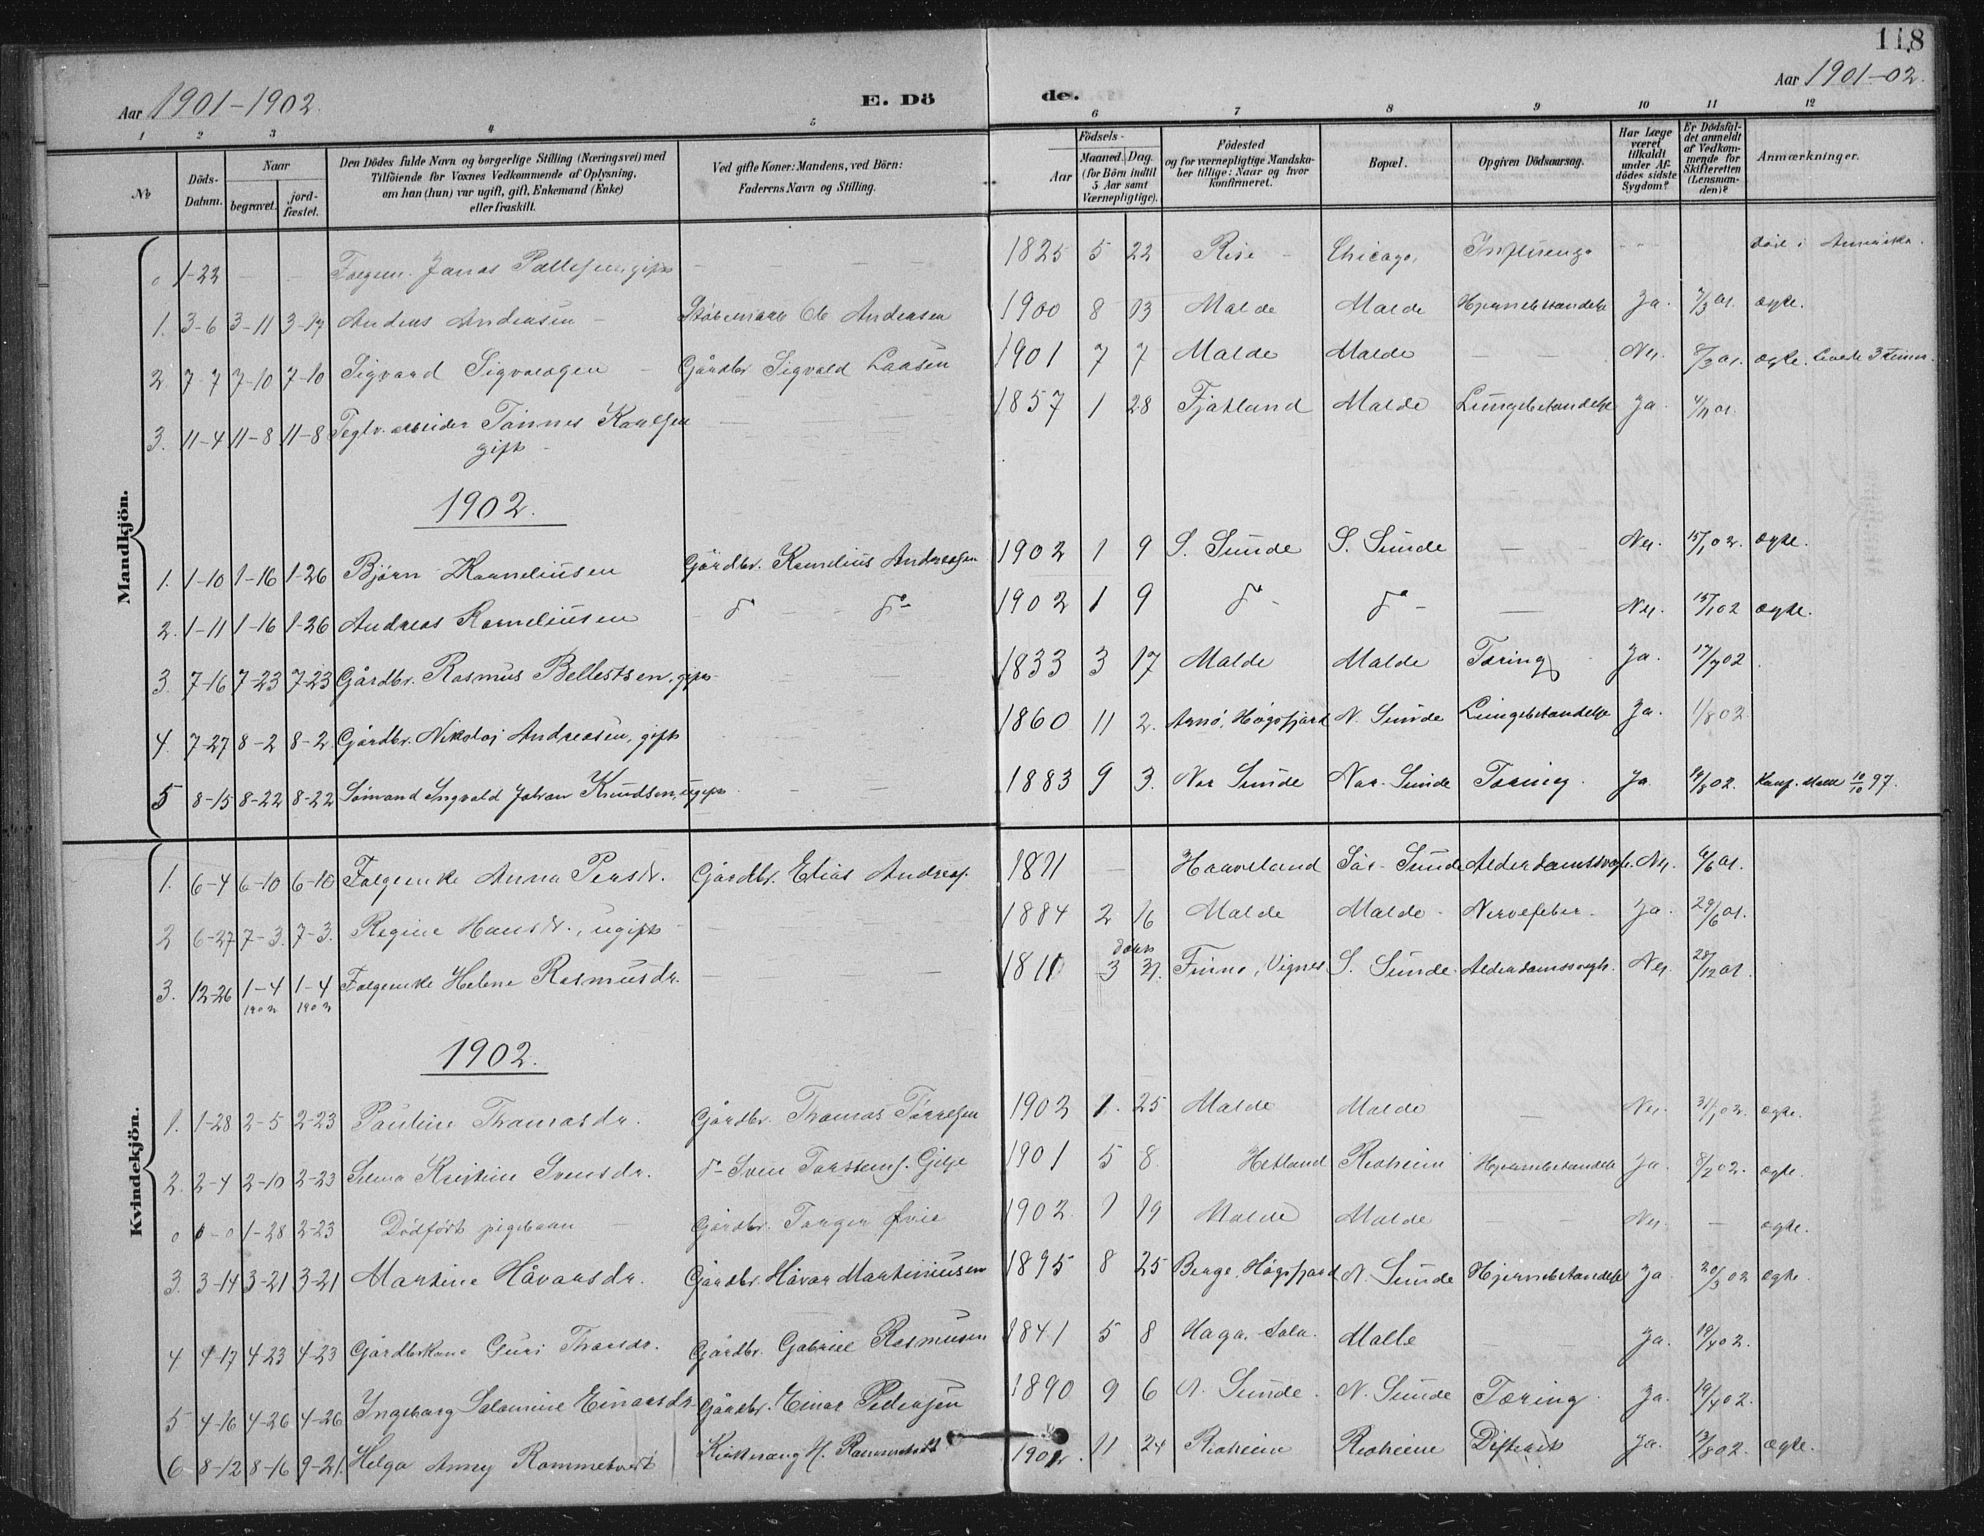 118
Aar 1901-1902. E. Dö de. Aar 1901-02.
1 2 3 4 5 6 7 8 9 10 11 12
No
Döds-Datum.
Naar
begravet.
jord-fæstet.
Den Dödes fulde Navn og borgerlige Stilling (Næringsvei) med
Tilföiende for Voxnes Vedkommende af Oplysning,
om han (hun) var ugift, gift, Enkemand (Enke)
eller fraskilt.
Ved gifte Koner: Mandens, ved Börn:
Faderens Navn og Stilling.
Födsels-
Aar
Maaned. Dag.
(for Börn indtil
5 Aar samt
Værnepligtige).
Födested
og for værnepligtige Mandska-
ber tillige: Naar og hvor
konfirmeret.
Bopæl.
Opgiven Dödsaarsag.
Har Læge
været
tilkaldt
under Af-
dödes sidste
Sygdom?
Er Dödsfal-
det anmeldt
af Vedkom-
mende for
Skifteretten
(Lensman-
den)?
Anmærkninger.
Mandkjön.
0 1-22 - - Folgem. Jonas Pallesen gift - 1825 5 22 Rise - Chicago, Influenza - - död i Amerika.
1. 3-6 3-11 3-17 Andreas Andersen - Ole Andersen 1900 8 13 Malde Malde Hjernebetændelse Ja. 7/3 01. ægte.
2. 7-7 7-10 7-10 Sigvard - Gårdbr. Sigvald Laasen 1901 7 7 Malde Malde - - Nei. ægte. Levede 3 timer.
3. 11-4 11-8 11-8 Teglv. arbeider Tönnes Karlsen 1857 1 28 Fjatland Malde Lungebetændelse Ja. 01.
gift -
1902.
1. 1-10 1-16 1-26 Björn Korneliusen Gårdbr. Kornelius Andreasen 1902 1 9 S. Sunde S. Sunde - Nei. 15/1 02. ægte.
2. 1-11 1-16 1-26 Andreas Korneliusen do - do - 1902 1 9 do - do - - Nei. 15/1 02 ægte.
3. 7-16 7-23 7-23 Gårdbr. Rasmus Bellestsen, gift - 1833 3 17 Malde Malde Tæring Ja. 17/7 02
4. 7-27 8-2 8-2 Gårdbr. Nikolai Andreasen, gift 1860 11 2. Högsfjord N. Sunde Lungebetændelse Ja. 1/8 02.
5 8-15 8-22 8-22 Sömand Ingvald Johan Knudsen, ugift 1883 9 3. Nor Sunde Nor. Sunde Tæring. Ja 02. Konf. 10/10 97.
Kvindekjön.
1. 6-4 6-10 6-10 Folgeenke Anna Persdr. Gårdbr. Elias Andreas. 1811 - Haaveland Sör-Sunde Alderdomssvagh. Nei. 6/6 01.
2 6-27 7-3. 7-3. Regine Hansdr., ugift - 1884 2 16 Malde Malde - Nervefeber. Ja. 29/6 01.
3. 12-26 1-4 1-4 Folgeenke Helene Rasmusdr. 1811 3 31. Finnö, Vignes S. Sunde. Alderdomssvagh. Nei. 28/12 01.
1902 1902
1902.
1. 1-28 2-5 2-23 Pauline Thomasdr. Gårdbr. Thomas Törresen 1902 1. 25 Malde Malde - Nei. 31/1 02. ægte.
2. 2-4 2-10 2-23 Selma Kristine Svensdr. do - Sven Torstens. Gilje 1901 5 8. Hetland Roaheim Hjernebetændelse Ja. 8/2 02. ægte.
0 0-0 1-28 2-23 Dödfödt pigebarn - Gårdbr. Torger 1902. 1 19 Malde Malde - Nei. - ægte.
3. 3-14 3-21 3-21 Martine Håvarsdr. Gårdbr. Håvar Martiniusen 1895 8 25 Berge, Högsfjord N. Sunde Hjernebetændelse Ja. 20/3 02 ægte.
4 4-17 4-23 4-23 Gårdbrkone Guri Gårdbr. Gabriel Rasmusen 1841 5 8 Haga, Sola. Malle - - Ja. 19/4 02.
5 4-16 4-26 4-26 Ingeborg Salamine Einarsdr. Gårdbr. Einar Pedersen 1890 9 6 N. Sunde. N. Sunde Tæring Ja. 19/4 02.
6 8-12 8-16 9-21. Helga Anny Rommetvedt Kirkesang. H. Rommetvedt 11 24 Roaheim Roaheim Difterit Ja. 13/8 02. ægte.